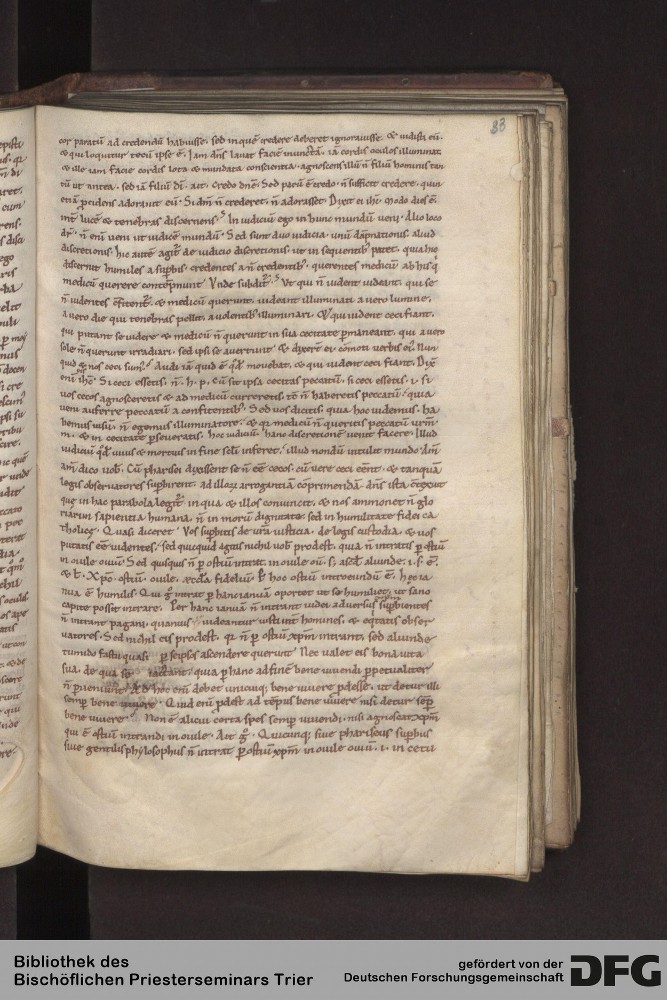 38
cor paratū ad credendū habuisse, sed in quē credere deberet ignoravisse. & vidisti eū.
& qui loquitur tecū ipse ē. Iam dñs lavat faciē inunctā. iā cordis oculos illuminat.
& ille iam facie cordis lota & mundata conscientia. agnoscens illū ñ filiū hominis tan
tū ut antea. sed iā filiū dī. ait. Credo dñe. Sed parū ē credo. ñ sufficit credere. quin
etiā pcidens adoravit eū. Si dm̄ ñ crederet. ñ adorasset. Dixit ei ihc.
int lucē & tenebras discernens. In iudiciū ego in hunc mundū veni. Alio loco
dr̄. ñ enī veni ut iudicē mundū. Sed sunt duo iudicia. unū dāpnationis. aliud
discretionis. hic autē agit de iudicio discretionis. ut in sequentib patet. quia hic
discernit humiles a supbis. credentes a ñ credentib. querentes medicū ab his q
medicū querere contēpnunt. Unde subdit. Ut qui ñ vident videant. qui se
ñ videntes cōfitent. & medicū querunt. videant illuminati a vero lumine.
& qui vident ceci fiant.
qui putant se videre & medicū ñ querunt in sua cecitate pmaneant. qui a vero
sole ñ querunt irradiari. sed ipsi se avertunt. & dixert ei cōmoti verbis ei. Nun
quid & nos ceci sum? Audi iā quid ē qd movebat. & qui vident ceci fiant. Dix
enī ihc. Si ceci essetis. ñ. h. p. cū sit ipsa cecitas peccatū. si ceci essetis. i. si
vos cecos agnosceretis & ad medicū curreretis. ñ haberetis peccatū. quia
veni auferre peccatū a confitentib. Sed vos dicitis. quia hoc videmus. ha
bemus visū. ñ egemus illuminatore. & qr medicū ñ queritis peccatū vrm̄
m̄. & in cecitate pseveratis. hoc iudiciū hanc discretionē venit facere. Illud
iudiciū qd vivis & mortuis in fine seclī inferet. illud nondū intulit mundo. Am̄
am̄ dico vob. Cū pharisei dixissent se ñ eē cecos. cū vere ceci eēnt. & tanquā
legis observatores supbirent. ad illoꝝ arrogantiā coprimendā. dñs ista
que in hac parabola legit. in qua & illos convincit. & nos ammonet ñ glo
riarim sapientia humana. ñ in morū dignitate. sed in humilitate fidei ca
tholice. Quasi diceret. Vos supbitis de vra iusticia. de legis custodia. & vos
putatis eē videntes. sed quicquid agitis nichil vob prodest. quia ñ intratis p ostiū
in ovile oviū. Sed quisquis ñ p ostiū intrat in ovile
& l. Xpc. ostiū. ovile. eccla fideliū. hoc ostiū introeundū ē. Hec ia
nua ē humilis. Qui g intrat p hanc ianuā oportet ut se humiliet. ut sano
capite possit intrare. Per hanc ianuā ñ intrant iudei adversus supbientes
ñ intrant pagani. quamvis videantur iusti int homines. & eqitatis obser
vatores. Sed nichil eis prodest. qr ñ p ostiū xpm intrant. sed aliunde
tumido fastu quasi p seipsos ascendere querunt. Nec valet eis bona vita
sua. de qua se iactant. quia p hanc ad finē bene vivendi ppetualiter
ñ pveniunt. Ad hoc enī debet unicuiq; bene vivere pdesse. ut detur illi
semp bene vivere. Quid enī pdest ad tēpus bene vivere nisi detur semp
bene vivere? Non ē alicui certa spes semp vivendi. nisi agnoscat xpm
qui ē ostiū intrandi in ovile. Ait g. Quicunq; sive phariseus supbus
sive gentilis phylosophus ñ intrat p ostiū xpm in ovile oviū. i. in cetu
Bibliothek des
Bischöflichen Priesterseminars Trier
gefördert von der
Deutschen Forschungsgemeinschaft
DFG